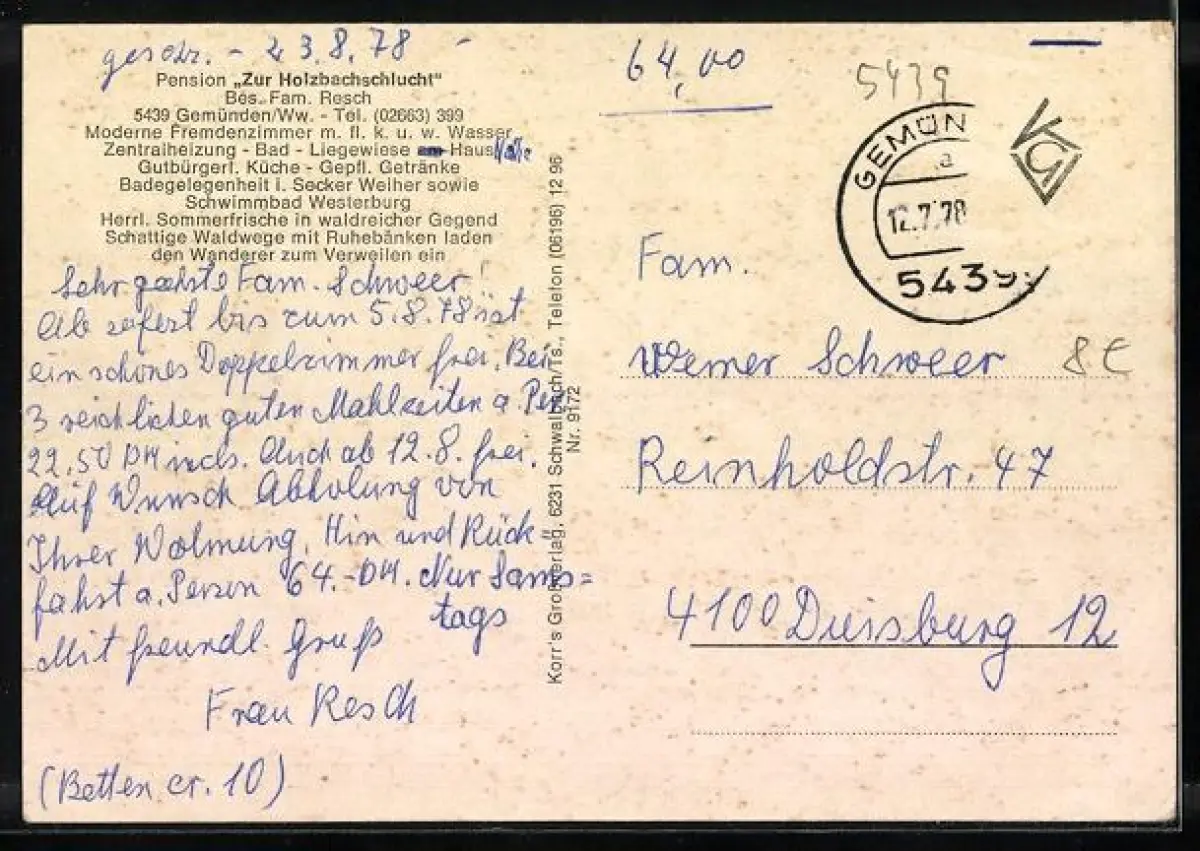 geschr. - 23.8.78 -
Pension „Zur Holzbachschlucht"
Bes. Fam. Resch
5439 Gemünden/Ww. - Tel. (02663) 399
Moderne Fremdenzimmer m. fl. k. u. w. Wasser
Zentralheizung - Bad - Liegewiese am Haus Nähe
Gutbürgerl. Küche - Gepfl. Getränke
Badegelegenheit i. Secker Weiher sowie
Schwimmbad Westerburg
Herrl. Sommerfrische in waldreicher Gegend
Schattige Waldwege mit Ruhebänken laden
den Wanderer zum Verweilen ein
Sehr geehrte Fam. Schweer!
Ab sofort bis zum 5.8.78 ist
ein schönes Doppelzimmer frei. Bei
3 reichlichen guten Mahlzeiten a. Pers.
22,50 DM incls. Auch ab 12.8. frei.
Auf Wunsch Abholung von
Ihrer Wohnung, Hin und Rück-
fahrt a. Person 64.-DM. Nur Sams=
tags
Mit freundl. Gruß
Frau Resch
(Betten cr. 10)
Korr's Großverlag, 6231 Schwalbach/Ts., Telefon (06196) 12 96
Nr. 9172
64,00
5439
GEMÜN
a
12.7.78
5439
KG
Fam.
Werner Schweer
8 €
Reinholdstr. 47
4100 Duisburg 12